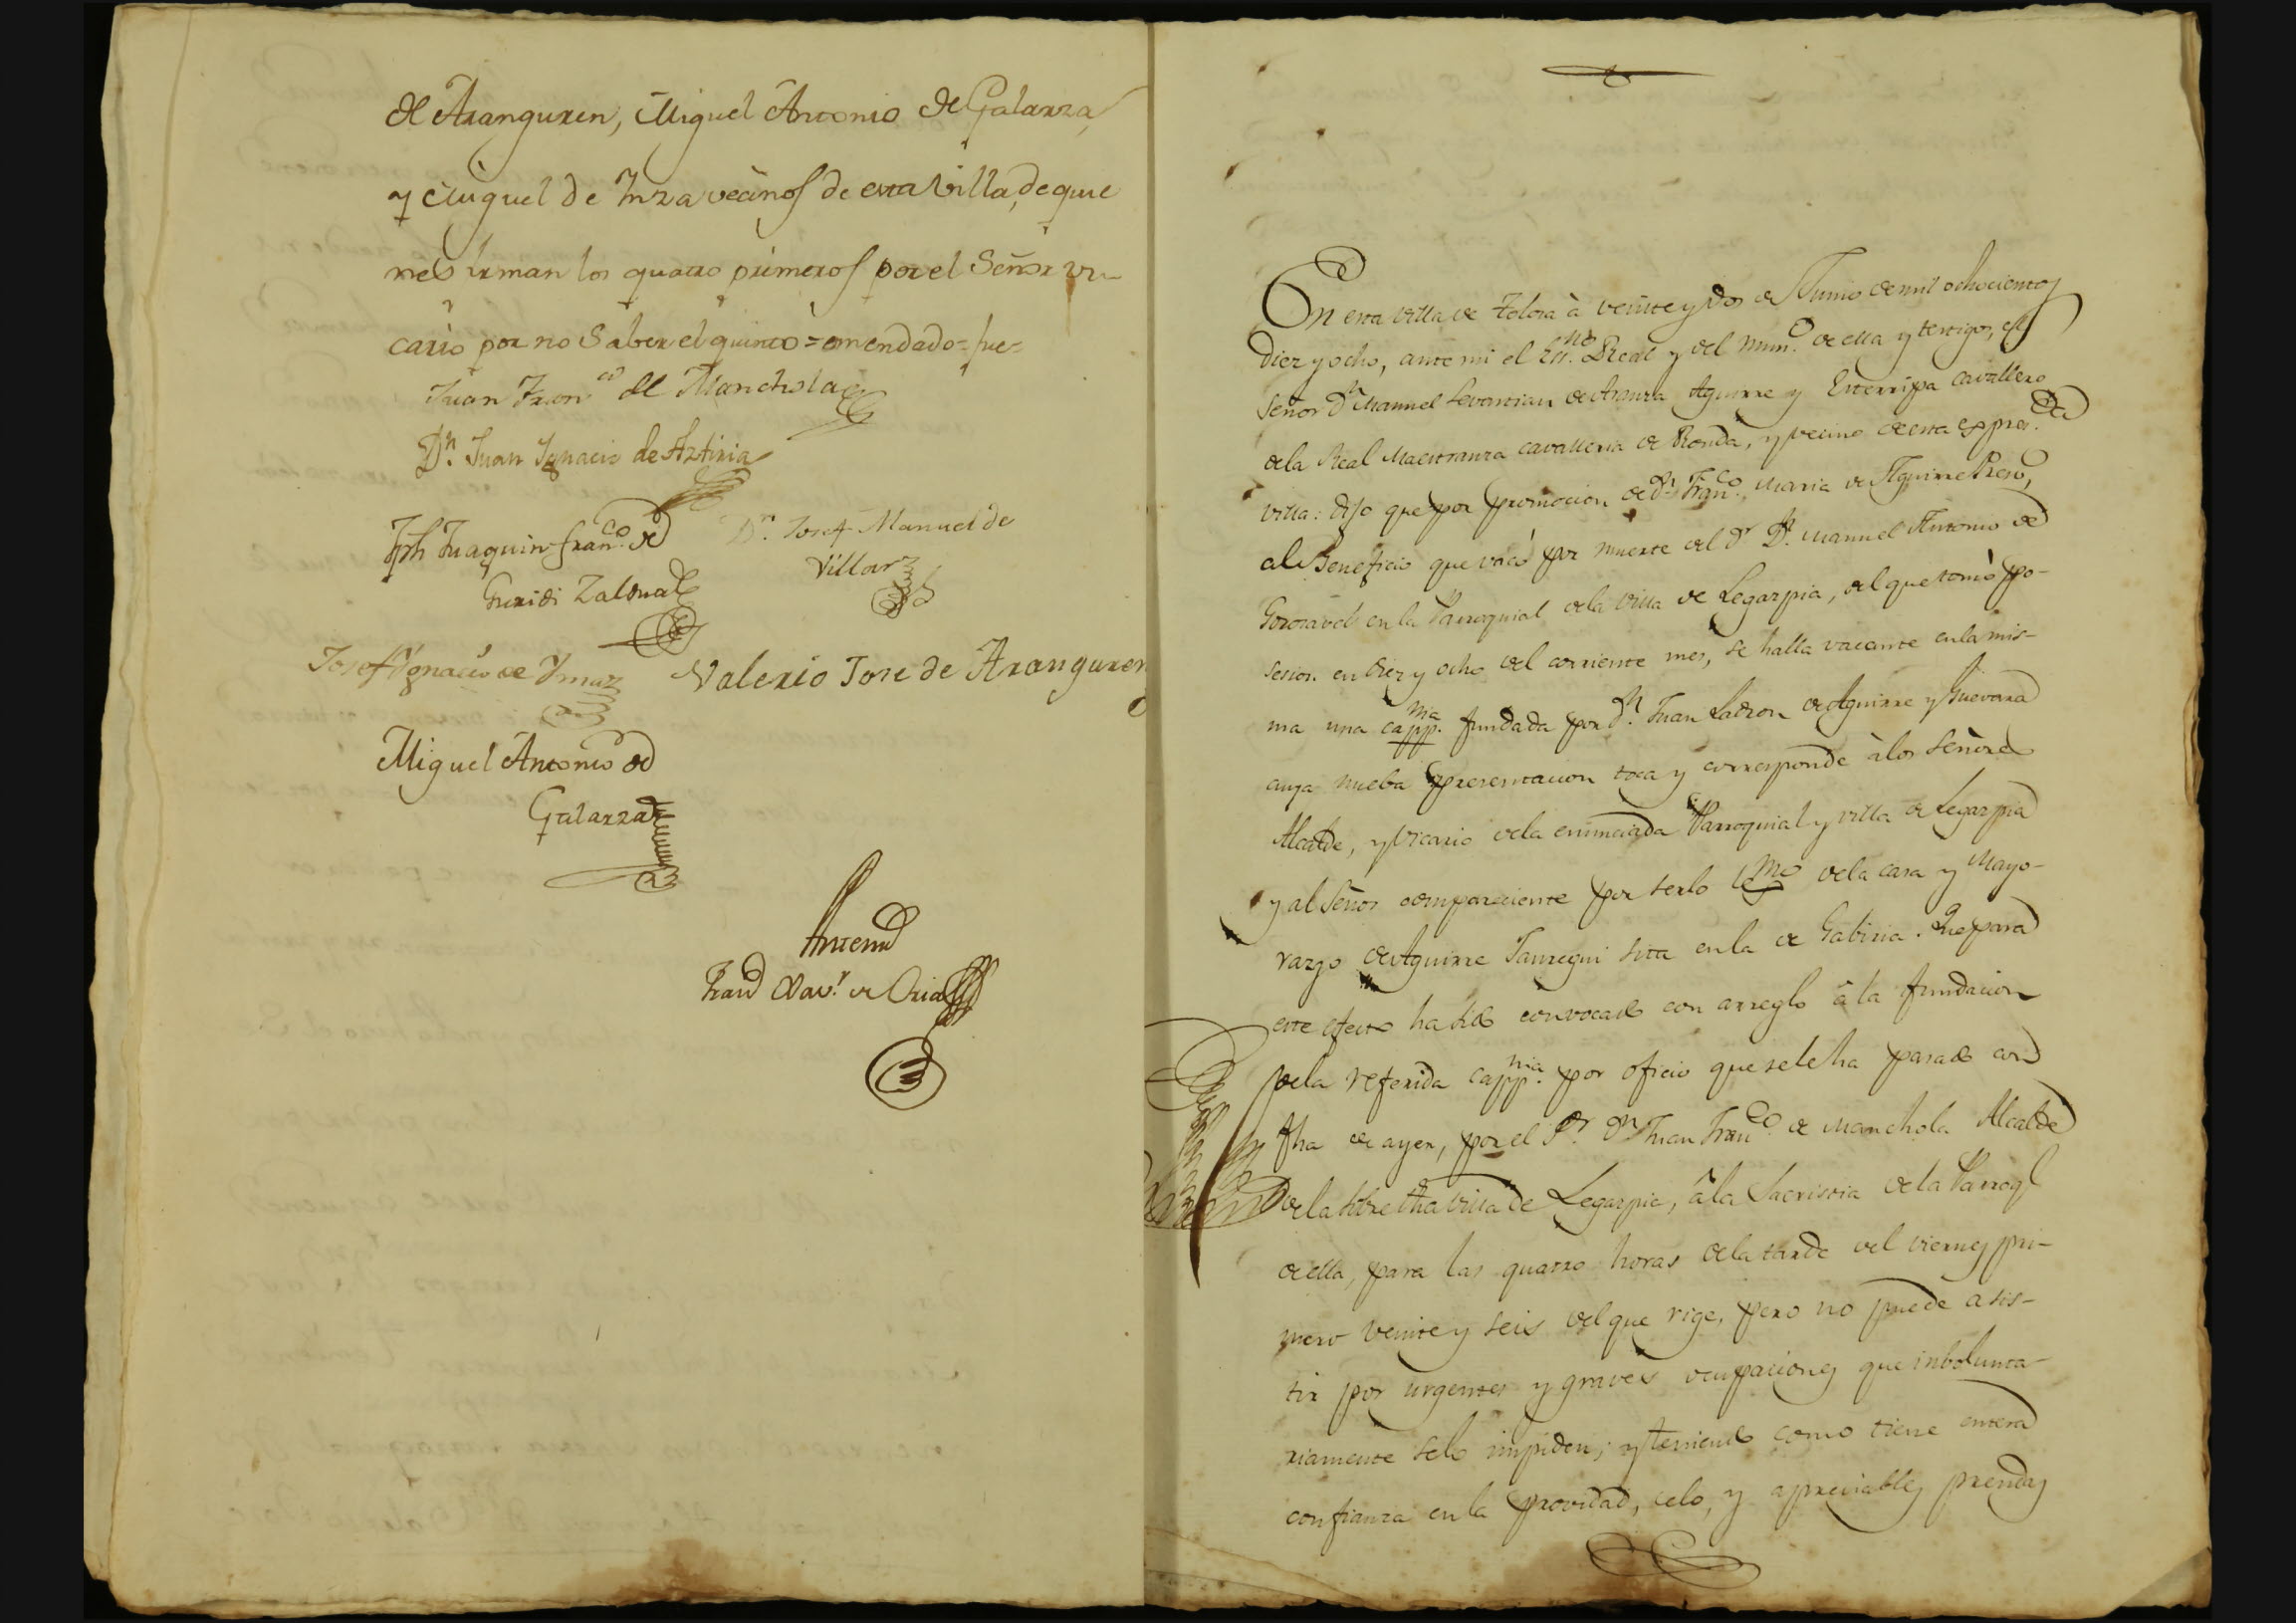 de Aranguren, Miguel Antonio de Galarza,
y Miguel de Inza vecinos de esta Villa, de quie
nes firman los quatro primeros por el Señor vi-
cario por no Saber el quinto = emendado = fue =
Juan Franco de Manchola
Dn. Juan Ygnacio de Aztiria
Jph Juaquin franco. de
Guridi Zaldua
Dn. Josef Manuel de
Villar
Josef Ygnacio de Ymaz
Valerio Jose de Aranguren
Miguel Antonio de
Galarza
Antemi
Franco Xavr. de Oria
En esta villa de Tolosa à veinte y dos de Junio de mil ochocientos
diez y ocho, ante mi el Essno. Real y del Numo. de ella y testigos, el
Señor Dn. Manuel Sevastian de Aguirre y Esterripa cavallero
de la Real Maestranza cavalleria de Ronda, y vecino de esta expresda
villa: dijo que por promocion de Dn. Franco. Maria de Aguirre Presvo,
al Beneficio que vacó por muerte del Dr. Dn. Manuel Antonio de
Gorosavel en la Parroquial de la villa de Legazpia, del que tomò po-
sesion en diez y ocho del corriente mes, se halla vacante en la mis-
ma una cappnia. fundada por Dn. Juan Ladron de Aguirre y Guevara
cuya nueba presentacion toca y corresponde à los Señores
Alcalde, y Vicario de la enunciada Parroquial y villa de Legazpia
y al Señor compareciente por serlo lexmo de la casa y Mayo-
razgo de Aguirre Jauregui sita en la de Gabiria. Que para
este efecto ha sido convocado con arreglo à la fundacion
de la referida cappnia. por oficio que se le ha pasado con
fha de ayer, por el Sr. Dn. Juan Franco. de Manchola Alcalde
de la sobre dha villa de Legazpia, à la Sacristia de la Parroql
de ella, para las quatro horas de la tarde del viernes pri-
mero veinte y seis del que rige, pero no puede asis-
tir por urgentes y graves ocupaciones que inbolunta-
riamente selo impiden; y teniendo como tiene entera
confianza en la providad, celo, y apreciables prendas